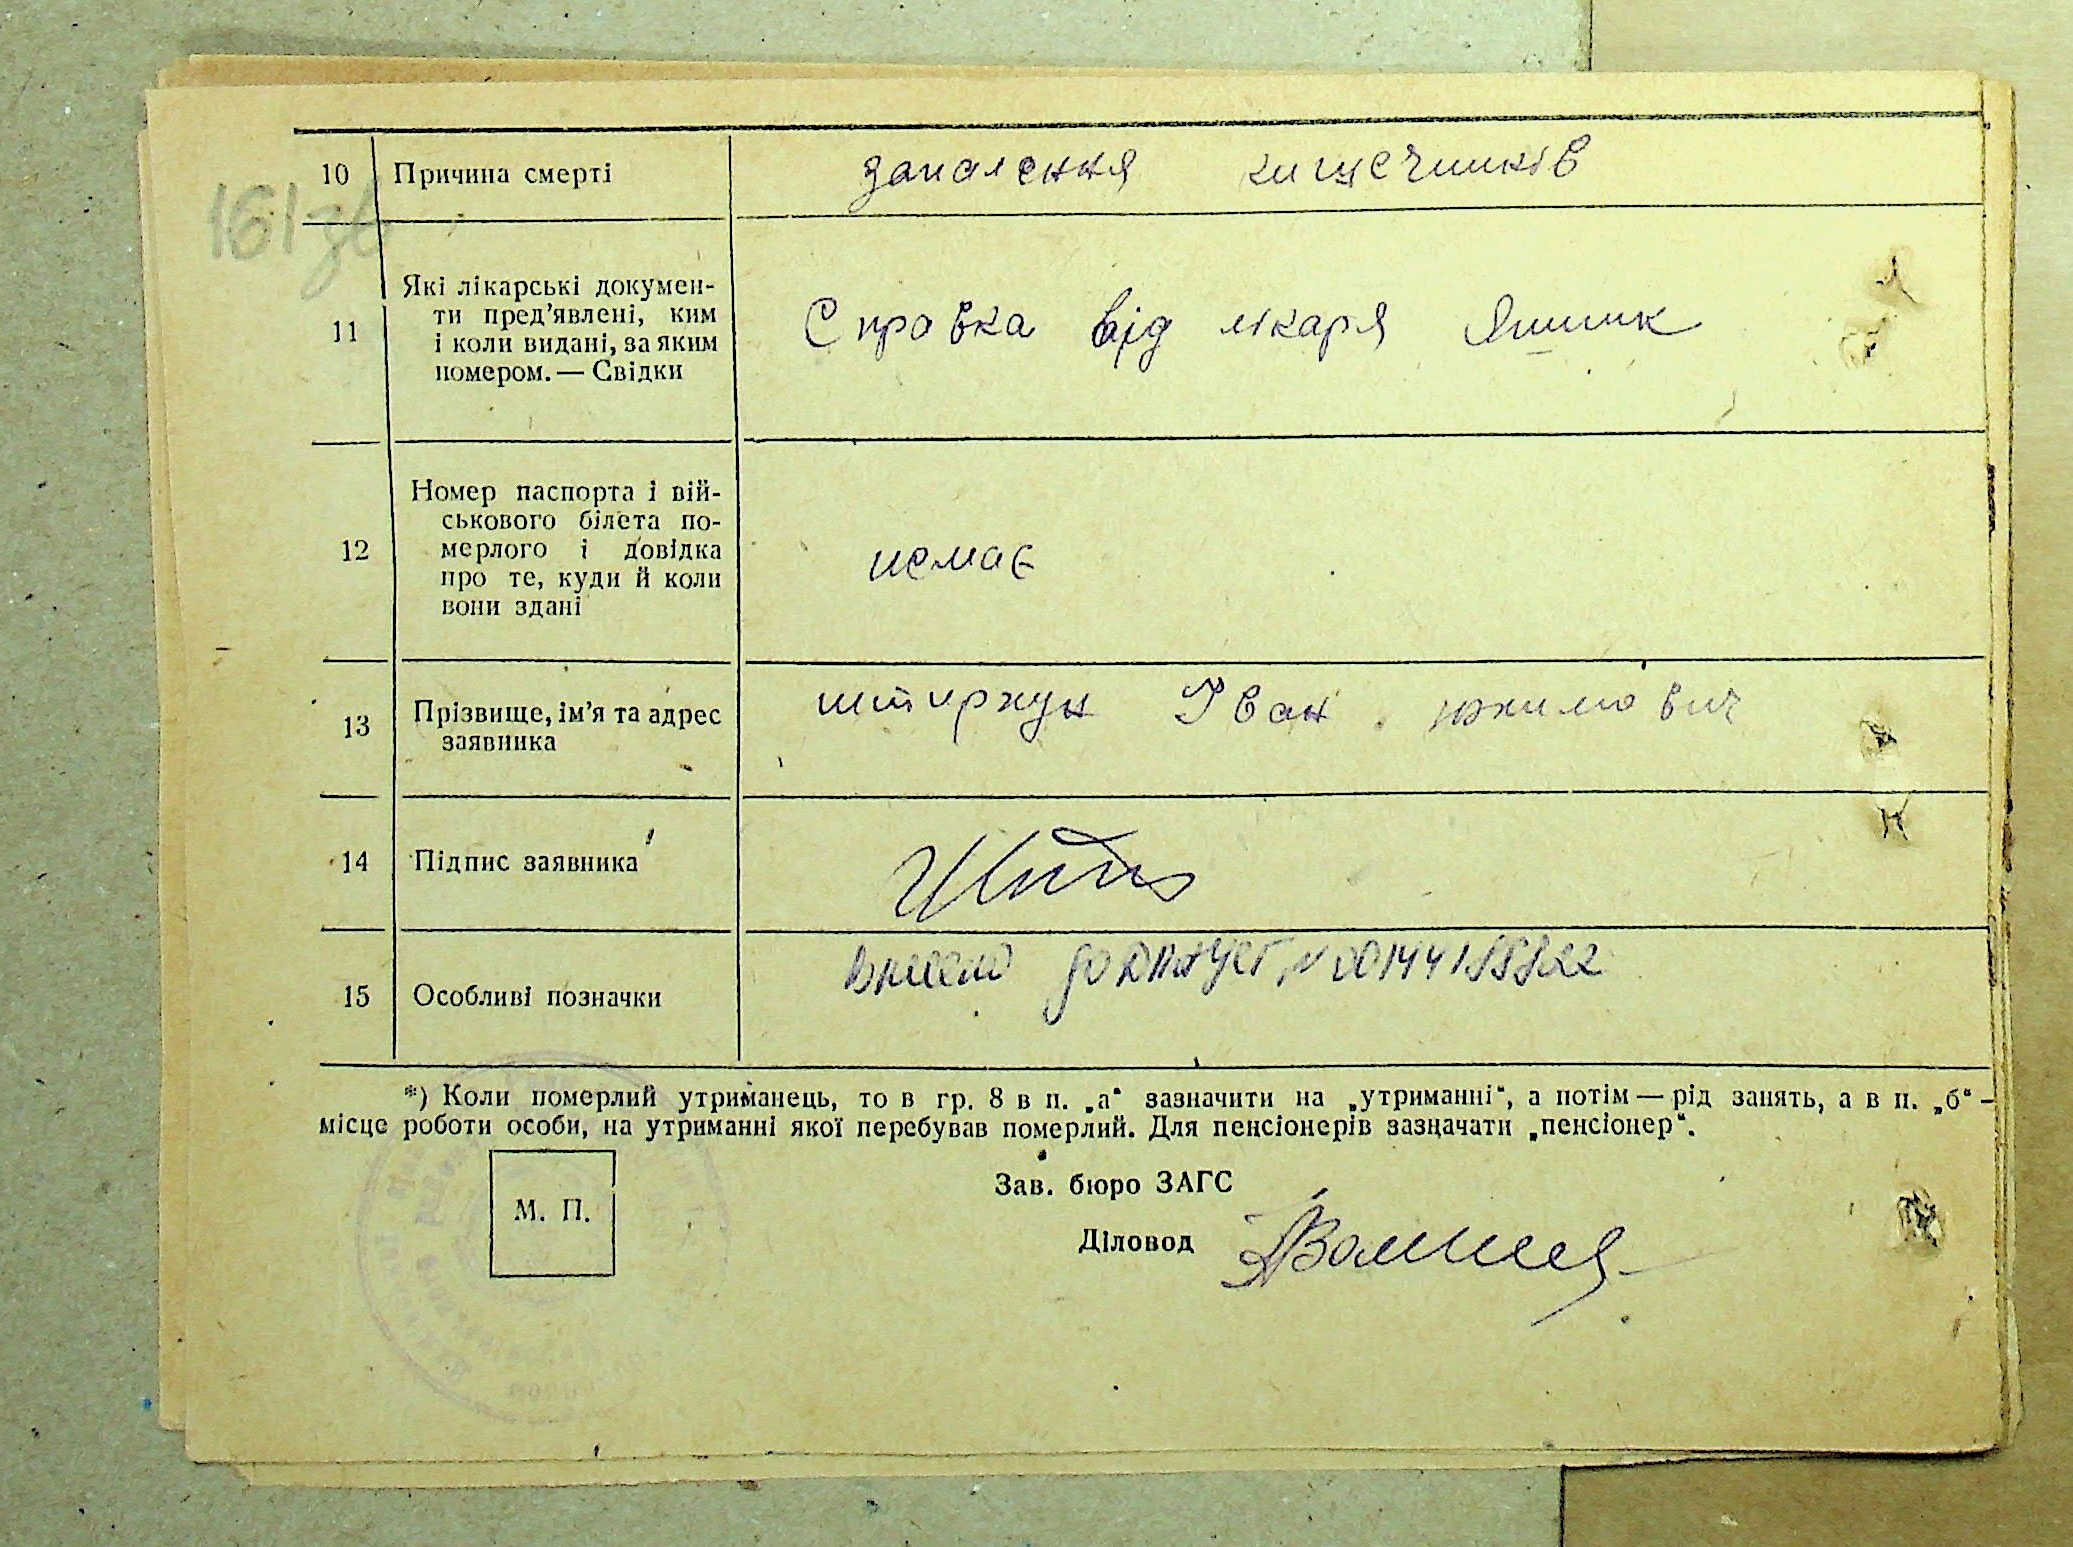 161зв
10 Причина смерті запалення кищечників
11 Які лікарські докумен-
ти пред'явлені, ким
і коли видані, за яким
номером. — Свідки
Справка від лікаря Яшник
12 Номер паспорта і вій-
ськового білета по-
мерлого і довідка
про те, куди й коли
вони здані
немає
13 Прізвище, ім'я та адрес
заявника
Іван юхимович
14 Підпис заявника
15 Особливі позначки
Внесено до ДРАЦСГ № 00144188822
*) Коли померлий утриманець, то в гр. 8 в п. „а“ зазначити на „утриманні“, а потім — рід занять, а в п. „б“ —
місце роботи особи, на утриманні якої перебував померлий. Для пенсіонерів зазначати „пенсіонер“.
М. П.
Зав. бюро ЗАГС
Діловод